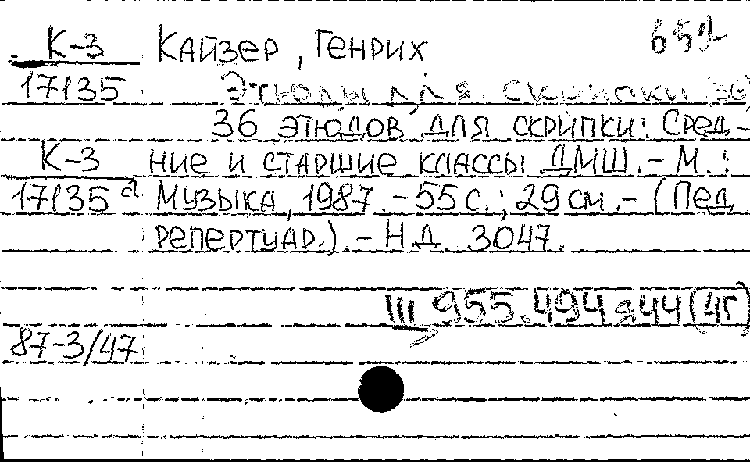 К-3 Кайзер, Генрих 652
17135 Этюды для скрипки 36
36 этюдов для скрипки: Сред-
К-3 ние и старшие классы ДМШ. - М.:
17135 а Музыка, 1987. - 55 с.; 29 см. - (Пед.
репертуар.). - Н.Д. 3047.
Ш 955.494 я44(4Г)
87-3/47